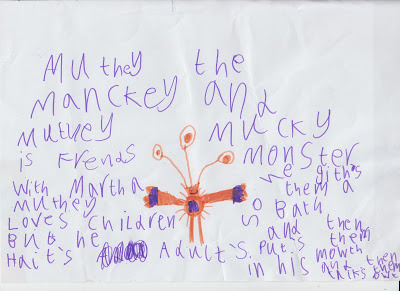 Muthey the
Manckey and
Mucky
Monster
Mutvey
is Frends
With Martha
Muthey
Loves children
But he
Hait's Adult's.
So he gith's
them a
Bath
and then
Put's them
in his mowth
and then